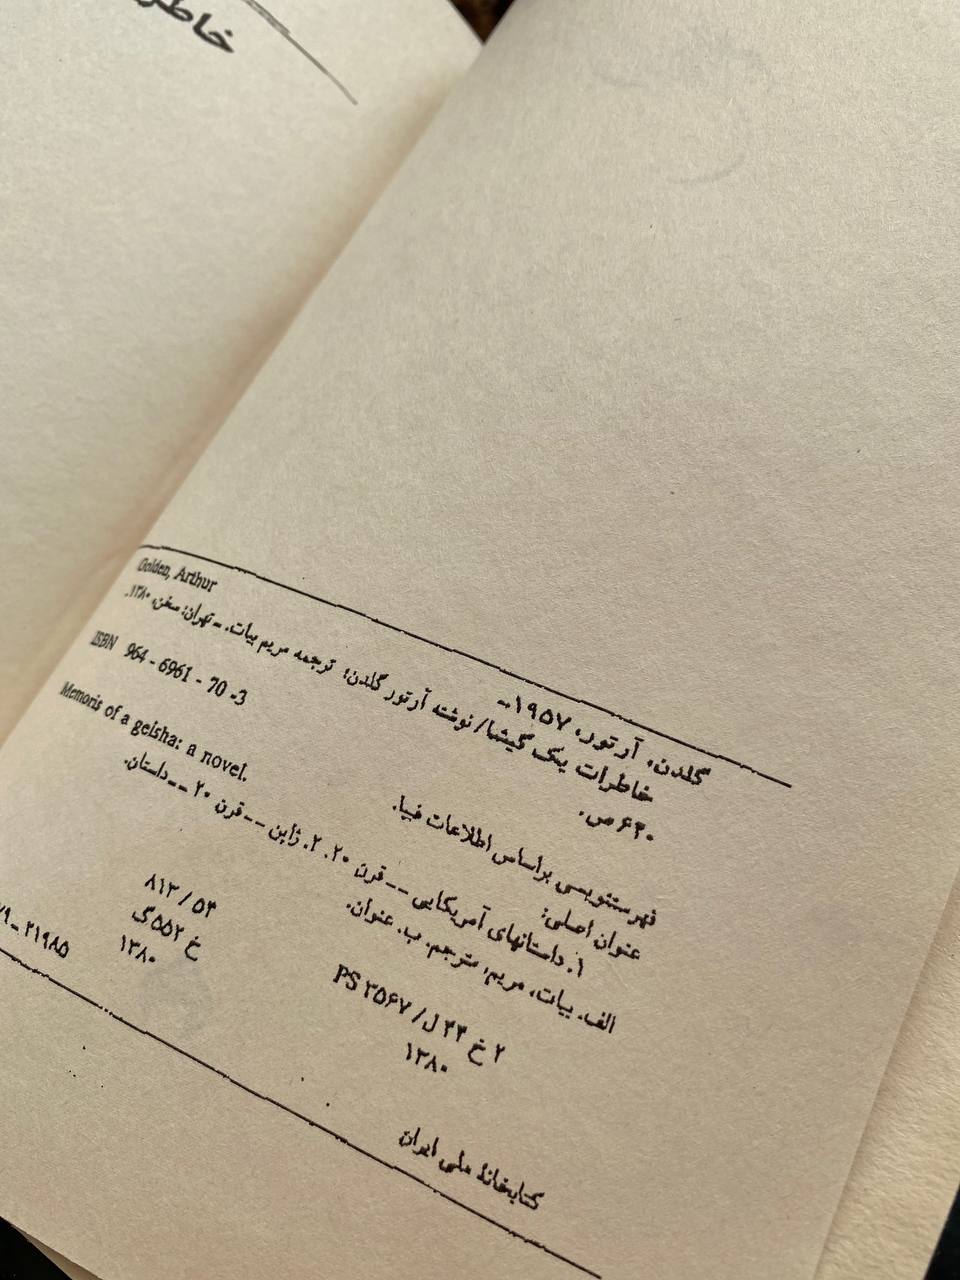 خاطر
Golden, Arthur
گلدن، آرتور، ۱۹۵۷-
خاطرات یک گیشا/ نوشته آرتور گلدن؛ ترجمه مریم بیات. ـ تهران: سخن، ۱۳۸۰.
۶۴۰ ص.
ISBN 964 - 6961 - 70 -3
فهرستنویسی براساس اطلاعات فیپا.
عنوان اصلی: Memoris of a geisha: a novel.
۱. داستانهای آمریکایی -- قرن ۲۰. ۲. ژاپن -- قرن ۲۰ -- داستان.
الف. بیات، مریم، مترجم. ب. عنوان.
۲ خ ۴۴ ل/ PS ۳۵۶۷ ۸۱۳ / ۵۴
۱۳۸۰ خ ۵۵۲گ
۱۳۸۰
کتابخانهٔ ملی ایران ۷۹ ـ ۲۱۹۸۵